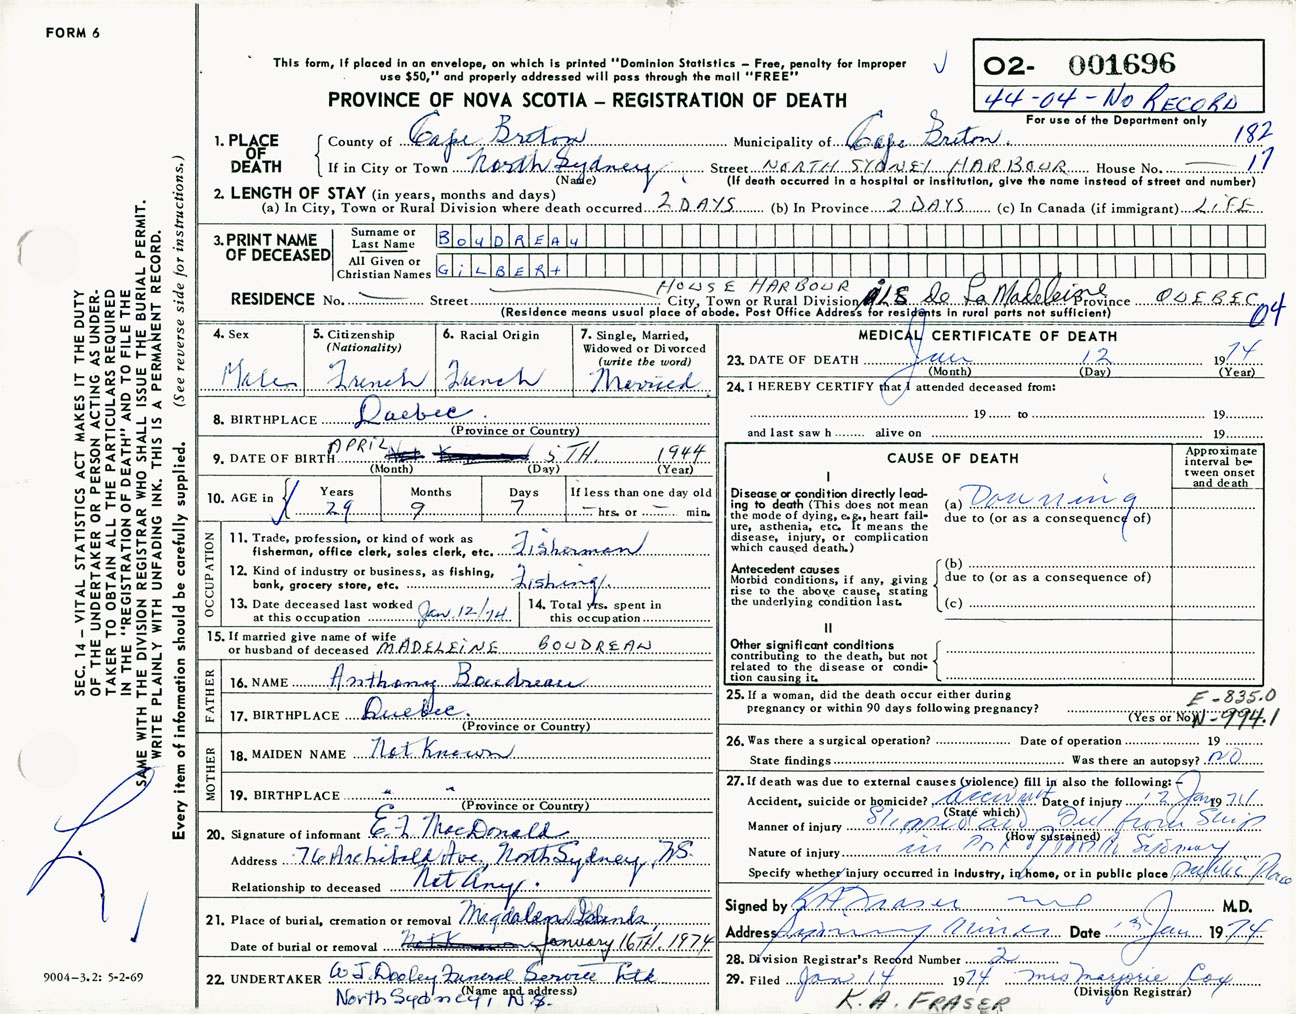 FORM 6
This form, if placed in an envelope, on which is printed "Dominion Statistics – Free, penalty for improper
use $50," and properly addressed will pass through the mail "FREE"
PROVINCE OF NOVA SCOTIA – REGISTRATION OF DEATH
02- 001696
44-04-NO RECORD
For use of the Department only
182
17
1. PLACE OF DEATH
County of Cape Breton Municipality of Cape Breton.
If in City or Town North Sydney Street NORTH SYDNEY HARBOUR House No.
(Name) (If death occurred in a hospital or institution, give the name instead of street and number)
2. LENGTH OF STAY (in years, months and days)
(a) In City, Town or Rural Division where death occurred 2 DAYS (b) In Province 2 DAYS (c) In Canada (if immigrant) LIFE
3. PRINT NAME OF DECEASED
Surname or Last Name BOUDREAU
All Given or Christian Names GILBERT
HOUSE HARBOUR
RESIDENCE No. Street City, Town or Rural Division ILS de La Madeleine Province QUEBEC
(Residence means usual place of abode. Post Office Address for residents in rural parts not sufficient)
04
4. Sex
Male
5. Citizenship
(Nationality)
French
6. Racial Origin
French
7. Single, Married,
Widowed or Divorced
(write the word)
Married
8. BIRTHPLACE Quebec.
(Province or Country)
9. DATE OF BIRTH APRIL 5TH. 1944
(Month) (Day) (Year)
10. AGE in
Years Months Days If less than one day old
29 9 7 hrs. or min.
OCCUPATION
11. Trade, profession, or kind of work as
fisherman, office clerk, sales clerk, etc. Fisherman
12. Kind of industry or business, as fishing,
bank, grocery store, etc. Fishing.
13. Date deceased last worked
at this occupation Jan. 12/74
14. Total yrs. spent in
this occupation
15. If married give name of wife
or husband of deceased MADELEINE BOUDREAU
FATHER
16. NAME Anthony Boudreau
17. BIRTHPLACE Quebec.
(Province or Country)
MOTHER
18. MAIDEN NAME Not Known
19. BIRTHPLACE " "
(Province or Country)
20. Signature of informant E L MacDonald
Address 76 Archibald Ave, North Sydney, NS.
Relationship to deceased Not Any.
21. Place of burial, cremation or removal Magdalen Islands
Date of burial or removal January 16TH, 1974
22. UNDERTAKER W J. Dooley Funeral Service Ltd
(Name and address)
North Sydney, N.S.
MEDICAL CERTIFICATE OF DEATH
23. DATE OF DEATH Jan 12 1974
(Month) (Day) (Year)
24. I HEREBY CERTIFY that I attended deceased from:
19 to 19
and last saw h alive on 19
CAUSE OF DEATH
Approximate
interval be-
tween onset
and death
I
Disease or condition directly lead-
ing to death (This does not mean
the mode of dying, e.g., heart fail-
ure, asthenia, etc. It means the
disease, injury, or complication
which caused death.)
(a) Drowning
due to (or as a consequence of)
Antecedent causes
Morbid conditions, if any, giving
rise to the above cause, stating
the underlying condition last.
(b)
due to (or as a consequence of)
(c)
II
Other significant conditions
contributing to the death, but not
related to the disease or condi-
tion causing it.
25. If a woman, did the death occur either during
pregnancy or within 90 days following pregnancy?
(Yes or No)
E-835.0
N-994.1
26. Was there a surgical operation? Date of operation 19
State findings Was there an autopsy? NO
27. If death was due to external causes (violence) fill in also the following:–
Accident, suicide or homicide? Accident Date of injury 12 Jan 1974
(State which)
Manner of injury Slipped and fell from Ship
(How sustained)
Nature of injury in Port of North Sydney
Specify whether injury occurred in industry, in home, or in public place public Place
Signed by K A Fraser M.D.
Address Sydney Mines Date 13 Jan 1974
28. Division Registrar's Record Number 2
29. Filed Jan 14 1974 Mrs Marjorie Cox
(Division Registrar)
K. A. FRASER
SEC. 14 – VITAL STATISTICS ACT MAKES IT THE DUTY
OF THE UNDERTAKER OR PERSON ACTING AS UNDER-
TAKER TO OBTAIN ALL THE PARTICULARS REQUIRED
IN THE "REGISTRATION OF DEATH" AND TO FILE THE
SAME WITH THE DIVISION REGISTRAR WHO SHALL ISSUE THE BURIAL PERMIT.
WRITE PLAINLY WITH UNFADING INK. THIS IS A PERMANENT RECORD.
Every item of information should be carefully supplied. (See reverse side for instructions.)
9004-3.2: 5-2-69